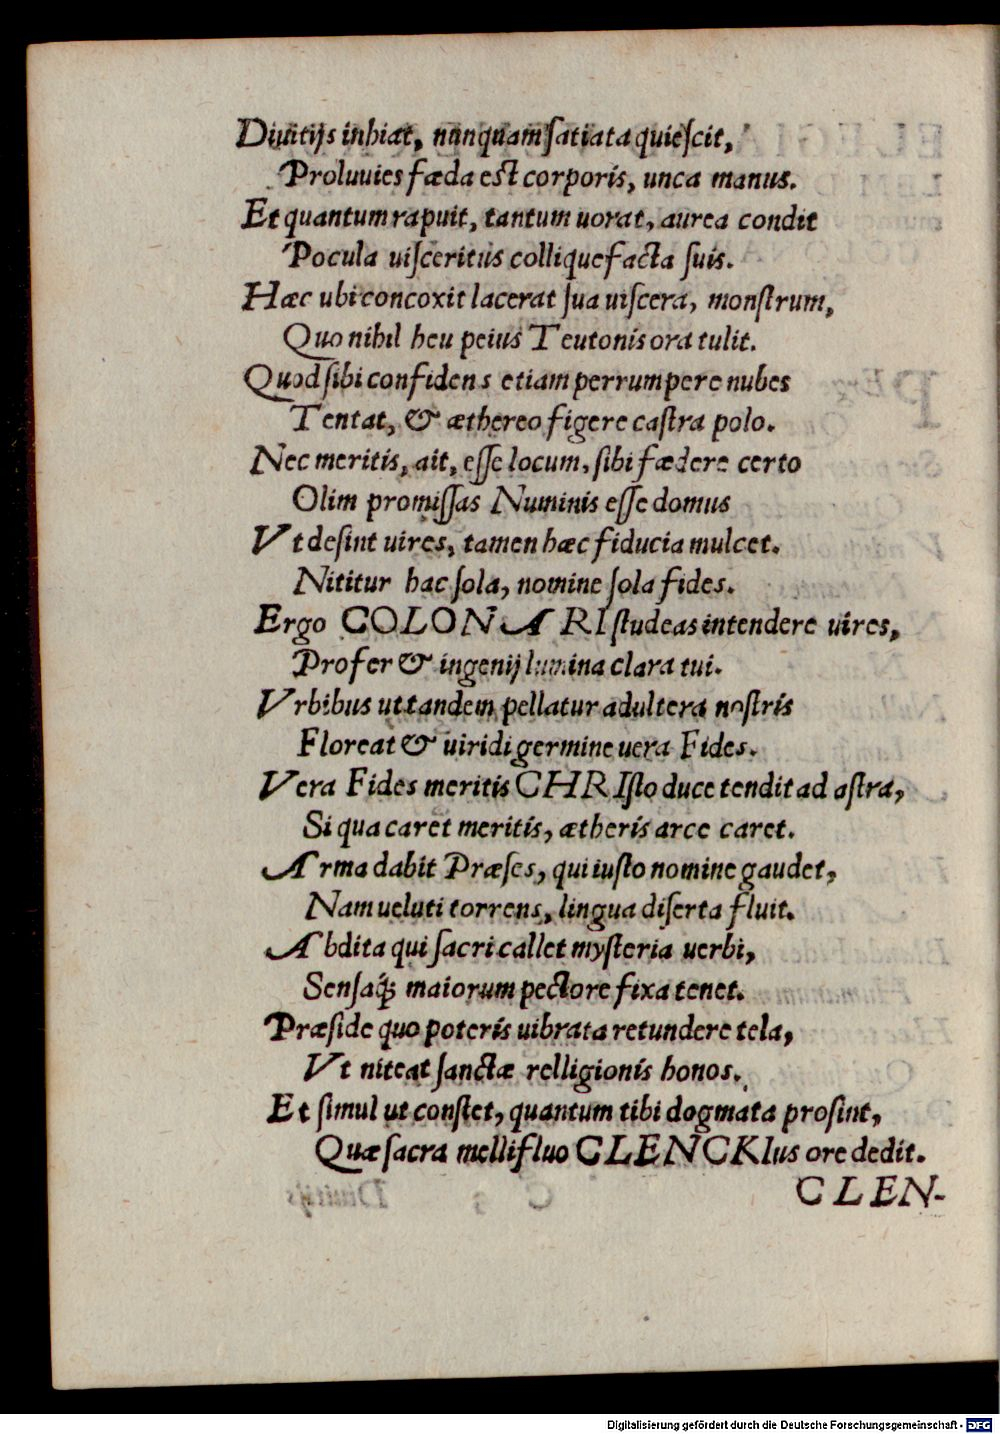 Diuitijs inhiat, nunquam ſatiata quieſcit,
Proluuies fæda eſt corporis, unca manus.
Et quantum rapuit, tantum uorat, aurea condit
Pocula uiſceribus colliquefacta ſuis.
Hæc ubi concoxit lacerat ſua uiſcera, monſtrum,
Quo nihil heu peius Teutonis ora tulit.
Quod ſibi confidens etiam perrumpere nubes
Tentat, & æthereo figere caſtra polo.
Nec meritis, ait, eſſe locum, ſibi fædere certo
Olim promiſſas Numinis eſſe domus
Vt deſint uires, tamen hæc fiducia mulcet.
Nititur hac ſola, nomine ſola fides.
Ergo COLONARI ſtudeas intendere uires,
Profer & ingenij lumina clara tui.
Vrbibus ut tandem pellatur adultera noſtris
Floreat & uiridi germine uera Fides.
Vera Fides meritis CHRIſto duce tendit ad aſtra,
Si qua caret meritis, ætheris arce caret.
Arma dabit Præſes, qui iuſto nomine gaudet,
Nam ueluti torrens, lingua diſerta fluit.
Abdita qui ſacri callet myſteria uerbi,
Senſaq́; maiorum pectore fixa tenet.
Præſide quo poteris uibrata retundere tela,
Vt niteat ſanctæ relligionis honos.
Et ſimul ut conſtet, quantum tibi dogmata proſint,
Quæ ſacra mellifluo CLENCKIus ore dedit.
CLEN-
Digitalisierung gefördert durch die Deutsche Forschungsgemeinschaft - DFG